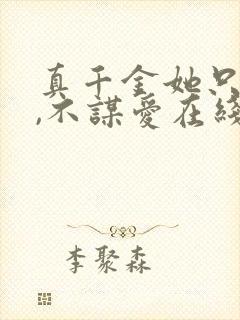 真千金她只
,不謀愛在綫
李聚森